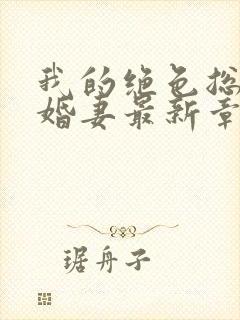 我的绝色总
婚妻最新章
琚舟子